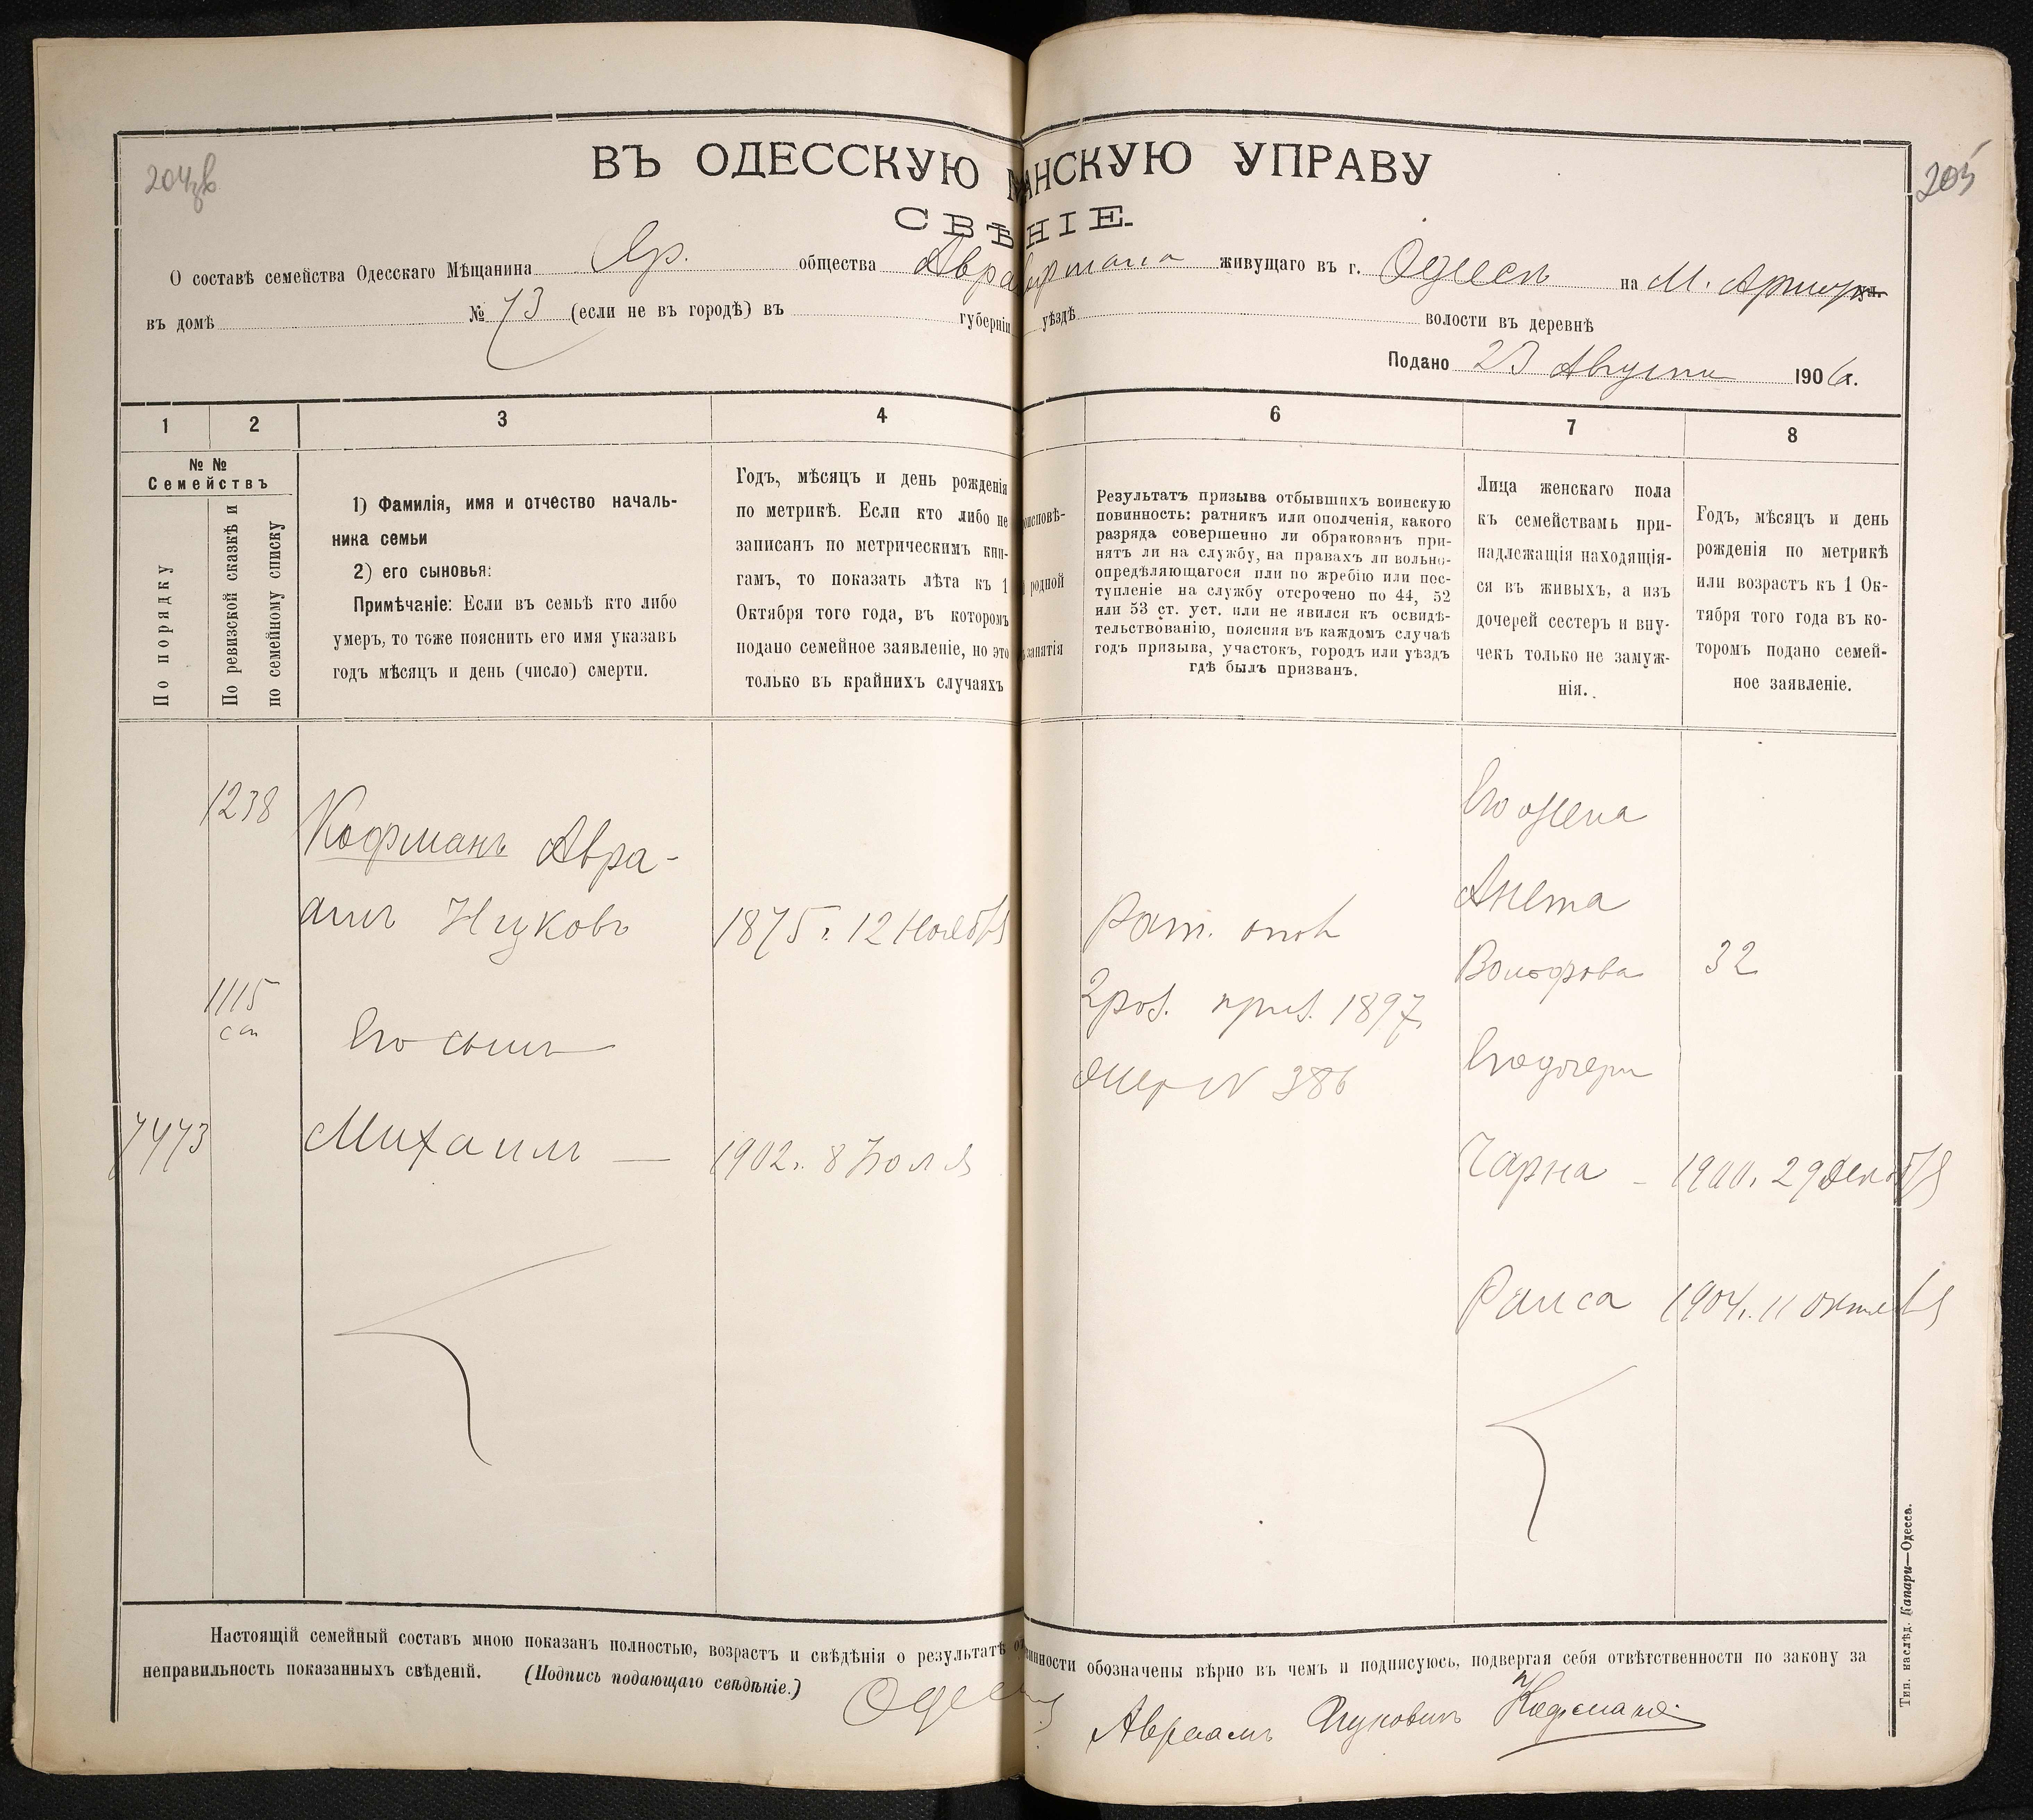 204об
205
ВЪ ОДЕССКУЮ АНСКУЮ УПРАВУ
СВѢНІЕ.
О составѣ семейства Одесскаго Мѣщанина Яр. общества Авра фмана живущаго въ г. Одессѣ на М. ул.
въ домѣ № 73 (если не въ городѣ) въ губерніи уѣздѣ волости въ деревнѣ
Подано 23 Августа 1906г.
1 2 3 4 6 7 8
№ №
Семействъ
По порядку
По ревизской сказкѣ и
по семейному списку
1) Фамилія, имя и отчество началь-
ника семьи
2) его сыновья:
Примѣчаніе: Если въ семьѣ кто либо
умеръ, то тоже пояснить его имя указавъ
годъ мѣсяцъ и день (число) смерти.
Годъ, мѣсяцъ и день рожденія
по метрикѣ. Если кто либо не
записанъ по метрическимъ кни-
гамъ, то показать лѣта къ 1
Октября того года, въ которомъ
подано семейное заявленіе, но это
только въ крайнихъ случаяхъ
оисповѣ-
родной
занятія
Результатъ призыва отбывшихъ воинскую
повинность: ратникъ или ополченія, какого
разряда совершенно ли обракованъ при-
нятъ ли на службу, на правахъ ли вольно-
опредѣляющагося или по жребію или пос-
тупленіе на службу отсрочено по 44, 52
или 53 ст. уст. или не явился къ освидѣ-
тельствованію, поясняя въ каждомъ случаѣ
годъ призыва, участокъ, городъ или уѣздъ
гдѣ былъ призванъ.
Лица женскаго пола
къ семействамъ при-
надлежащія находящія-
ся въ живыхъ, а изъ
дочерей сестеръ и вну-
чекъ только не замуж-
нія.
Годъ, мѣсяцъ и день
рожденія по метрикѣ
или возрастъ къ 1 Ок-
тября того года въ ко-
торомъ подано семей-
ное заявленіе.
1238
Кофманъ Авра-
амъ Нцковъ 1875г. 12 Ноября
1115
сп
Его сынъ
7473 Михаилъ — 1902г. 8 Іюля
Рат. опол
2 раз. приз. 1897
жер № 386
Его жена
Анета
Вольфова 32
Его дочери
Чарна - 1900г. 29 Декабря
Раиса 1904г. 11 Октября
Настоящій семейный составъ мною показанъ полностью, возрастъ и свѣдѣнія о результатѣ от инности обозначены вѣрно въ чемъ и подписуюсь, подвергая себя отвѣтственности по закону за
неправильность показанныхъ свѣденій. (Подпись подающаго свѣдѣніе.)
Авраамъ Ицковичъ Кофманъ
Тип. наслѣд. Капари—Одесса.